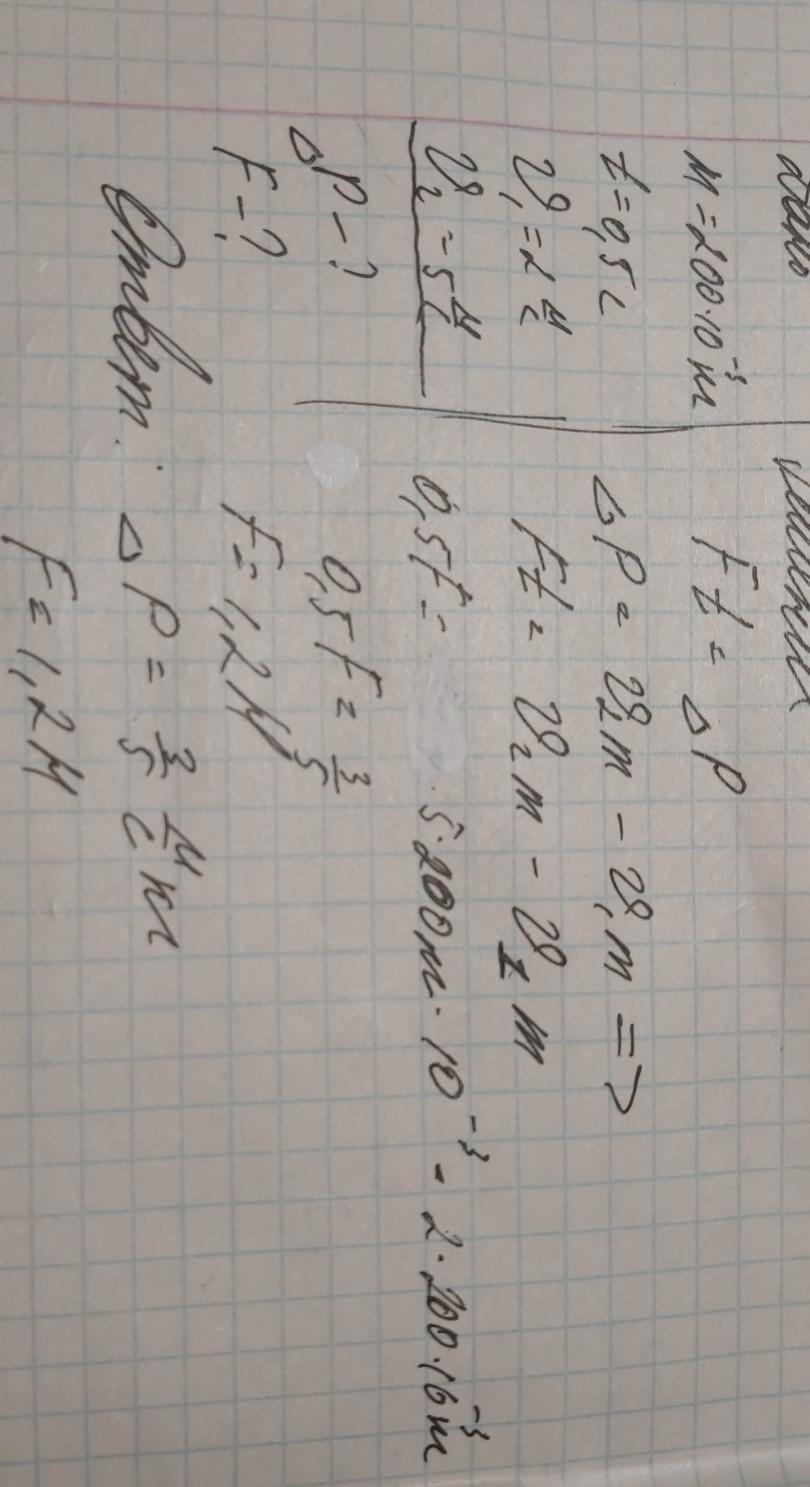 Дано
m = 200·10⁻³ кг
t = 0,5 с
υ₁ = 2 м/с
υ₂ = 5 м/с
ΔP - ?
F - ?
Решение
Ft = ΔP
ΔP = υ₂m - υ₁m =>
Ft = υ₂m - υ₁m
0,5F = 5·200 · 10⁻³ - 2·200·10⁻³
0,5F = 3/5
F = 1,2 Н
Ответ: ΔP = 3/5 м/с кг
F = 1,2 Н